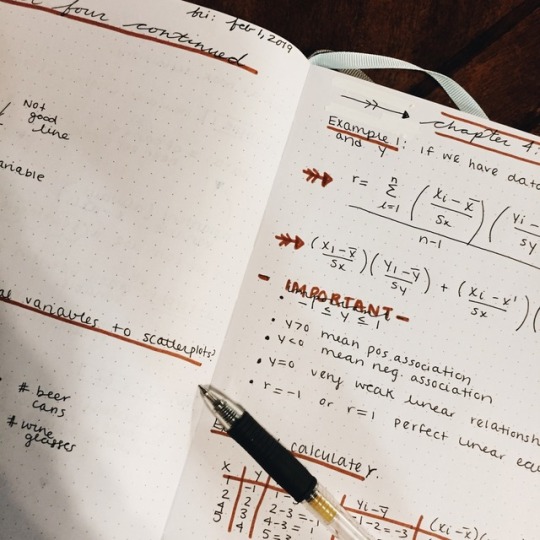 four continued
fri: feb 1, 2019
Not
good
line
variable
variables to scatterplots?
# beer
cans
# wine
glasses
chapter 4:
Example 1: if we have data
and y
r = n Σ i=1 (xi - x̄ / sx) (yi - / sy
n-1
(x1 - x̄ / sx) (y1 - ȳ / sy) + (xi - x' / sx) (
- IMPORTANT -
• -1 ≤ y ≤ 1
• y>0 mean pos. association
• y<0 mean neg. association
• y=0 very weak linear relationsh
• r=-1 or r=1 perfect linear
calculate r.
x y yi - ȳ (xi - x̄)(
1 -1 -1-2=-3
2 2 2-3=-1
4 3 4-3=1
5 4 5-3=